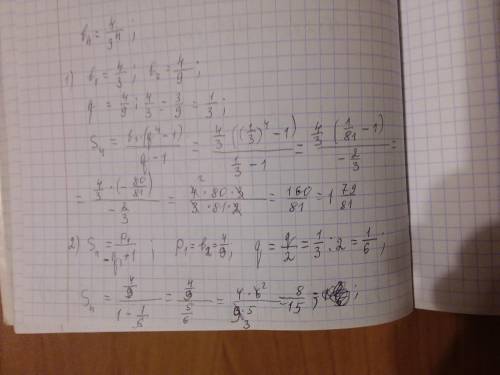 bₙ = 4/3ⁿ ;
1) b₁ = 4/3 ; b₂ = 4/9 ;
q = 4/9 : 4/3 = 3/9 = 1/3 ;
S₄ = b₁(q⁴ - 1)/(q - 1) = 4/3 ((1/3)⁴ - 1)/(1/3 - 1) = 4/3 (1/81 - 1)/(-2/3) =
= 4/3 · (-80/81)/(-2/3) = 4 · 80 · 3/(3 · 81 · 2) = 160/81 = 1 79/81
2) Sₙ = p₁/(-q₁+1) ; p₁ = b₂ = 4/9 ; q = q/2 = 1/3 : 2 = 1/6 ;
Sₙ = (4/9)/(1 - 1/6) = (4/9)/(5/6) = 4 · 6²/(9₃ · 5) = 8/15 ;